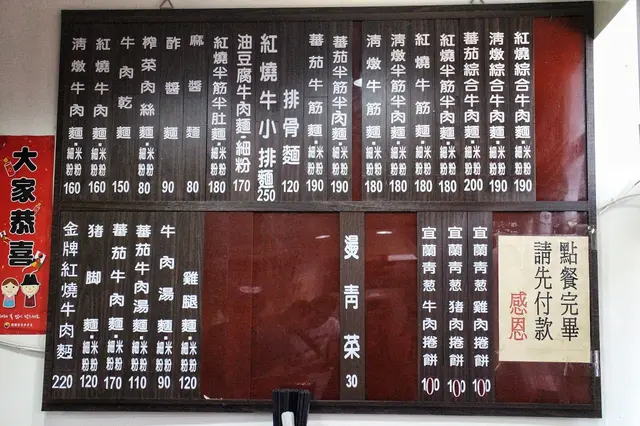 紅燒綜合牛肉麵·米粉細粉 190
清燉綜合牛肉麵·米粉細粉 190
蕃茄綜合牛肉麵·米粉細粉 200
紅燒半筋半肉麵·米粉細粉 180
紅燒牛筋麵·米粉細粉 180
清燉半筋半肉麵·米粉細粉 180
清燉牛筋麵·米粉細粉 180
蕃茄半筋半肉麵·米粉細粉 190
蕃茄牛筋麵·米粉細粉 190
排骨麵 120
紅燒牛小排麵 250
油豆腐牛肉麵·細粉 170
紅燒半筋半肚麵·米粉細粉 180
麻醬麵 80
酢醬麵 90
榨菜肉絲麵·米粉細粉 80
牛肉乾麵 150
紅燒牛肉麵·米粉細粉 160
清燉牛肉麵·米粉細粉 160
點餐完畢
請先付款
感恩
宜蘭青葱雞肉捲餅 100
宜蘭青葱豬肉捲餅 100
宜蘭青葱牛肉捲餅 100
燙青菜 30
雞腿麵·米粉細粉 120
牛肉湯麵·米粉細粉 90
蕃茄牛肉湯麵·米粉細粉 110
蕃茄牛肉麵·米粉細粉 170
豬腳麵·米粉細粉 120
金牌紅燒牛肉麵 220
大家恭喜